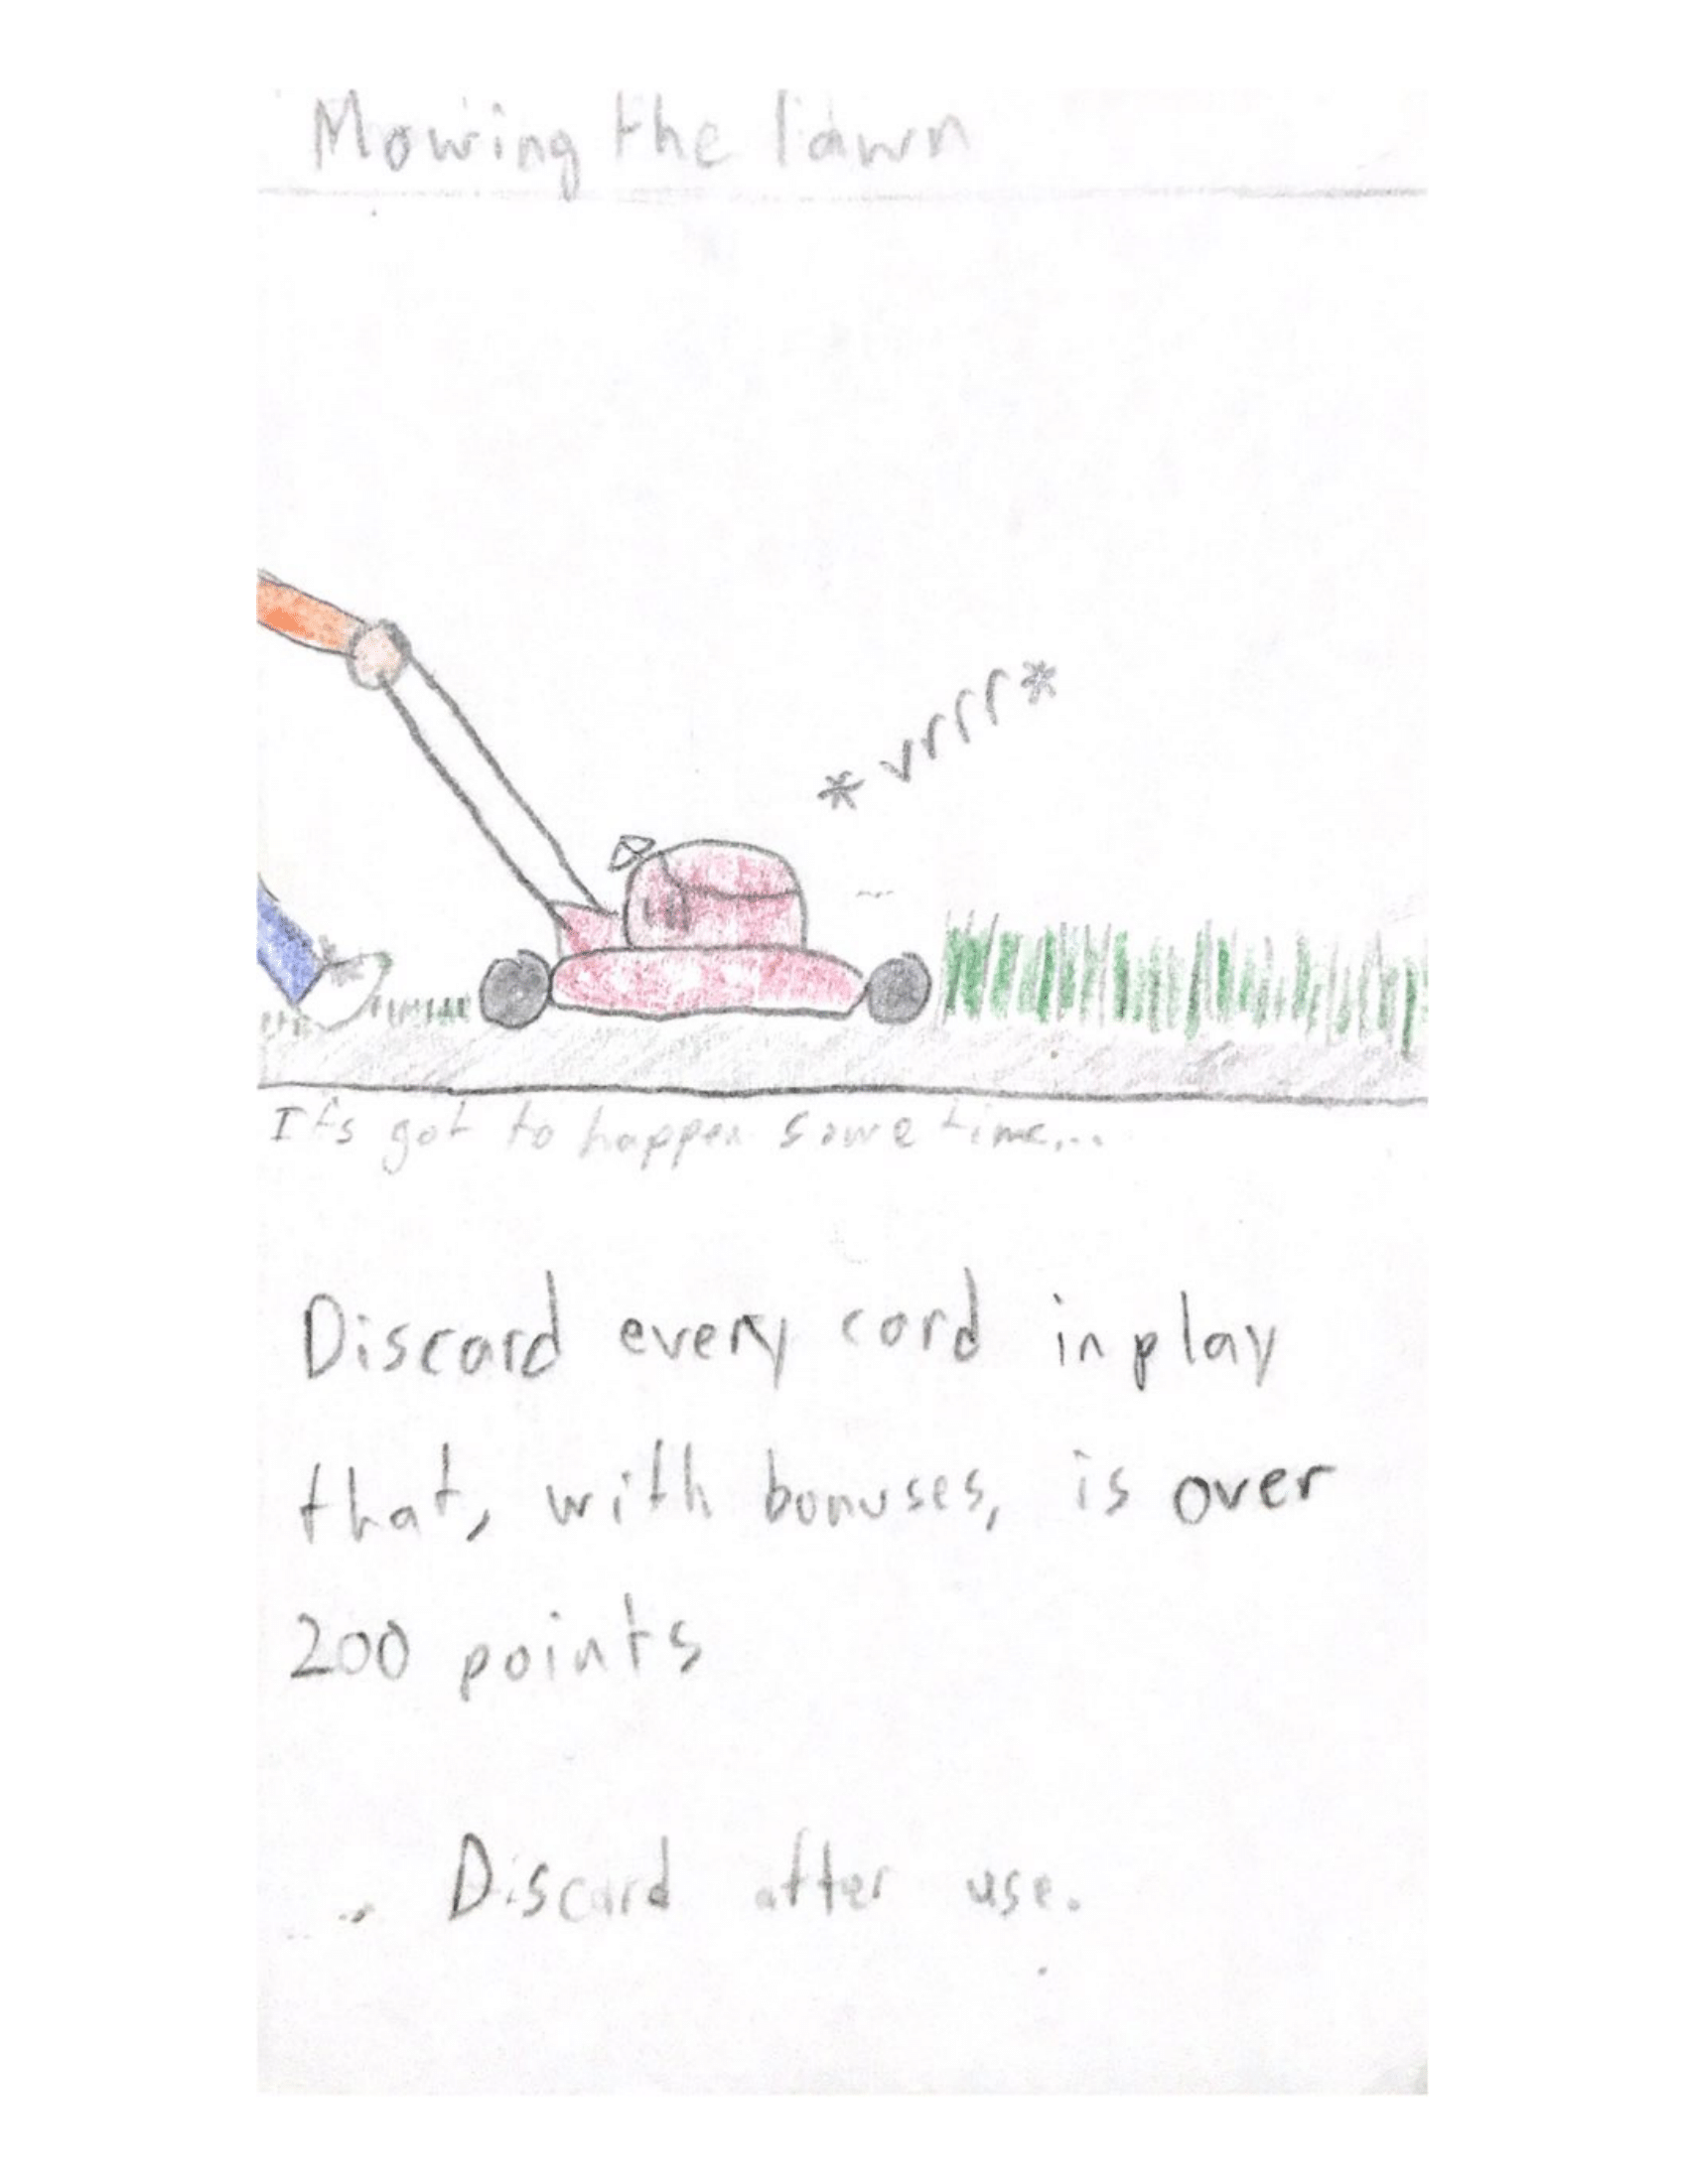 Mowing the lawn
*vrrr*
It's got to happen some time...
Discard every card in play
that, with bonuses, is over
200 points
Discard after use.